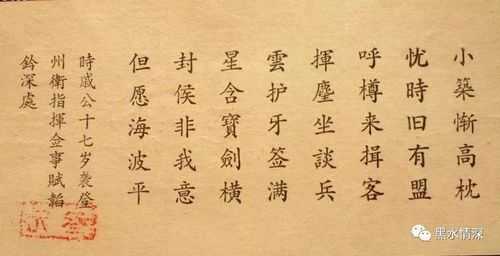 小築惭高枕
忧時旧有盟
呼樽来揖客
揮麈坐談兵
雲护牙签满
星含寶劍橫
封侯非我意
但愿海波平
時戚公十七岁袭登
州衛指揮佥事賦韜
鈐深處
黑水情深